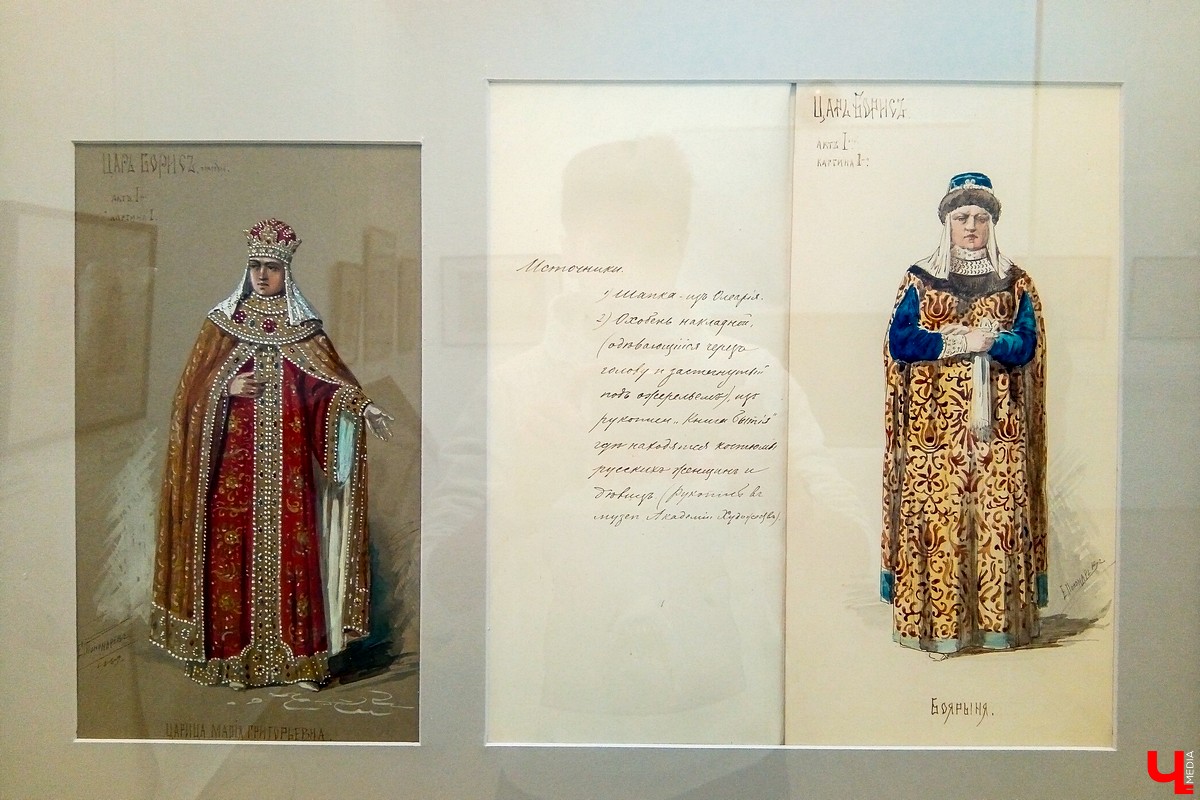 ЦАРЬ БОРИСЪ
актъ I
картина I.
ЦАРИЦА МАРІЯ ГРИГОРЬЕВНА.
Источники.
1) Шапка - изъ Олеарія.
2) Охобень накладной,
(одѣвающійся черезъ
голову и застегнутый
подъ ожерельемъ), изъ
рукописи „Книга Бытія"
гдѣ находятся костюмы
русскихъ женщинъ и
дѣвицъ (рукопись въ
музеѣ Академіи Художествъ)
ЦАРЬ БОРИСЪ
актъ I
картина I
Боярыня.
Ч MEDIA